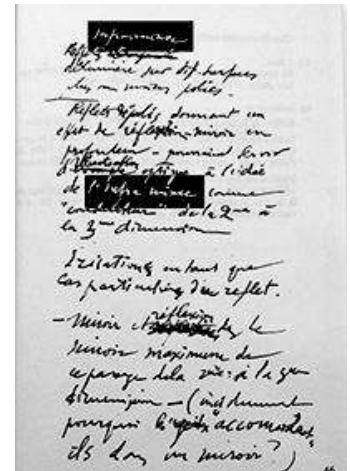 Inframince
Reflets
de lumière sur dif. surfaces
plus ou moins polies.
Reflets dépolis donnant un
effet de réflexion - miroir en
profondeur - pourraient servir
d' illustration optique à l'idée
de l'infra mince comme
"conducteur" de la 2me à
la 3me dimension
Irisations en tant que
Cas particuliers du reflet.
- Miroir et réflexion le
miroir maximum de
ce passage de la 2me à la 3me
dimension - (incidemment
pourquoi les yeux "accomodent"
ils dans un miroir? )